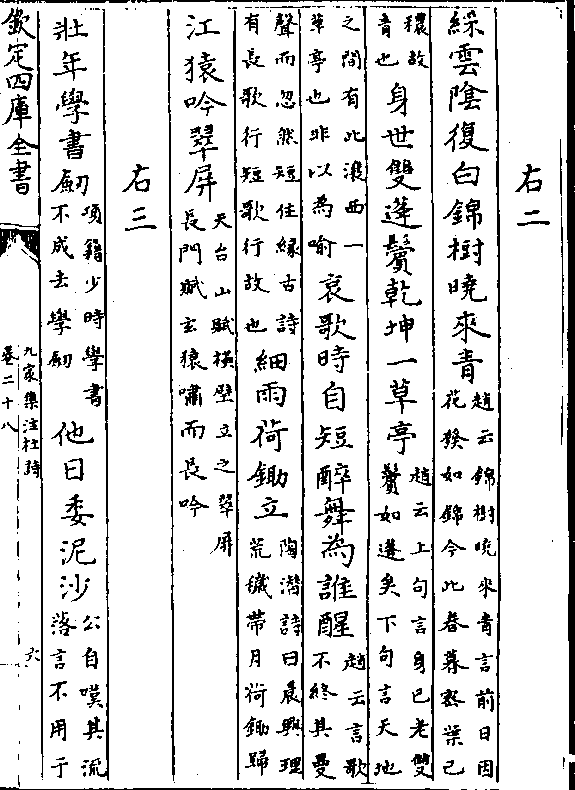 右二
綵雲陰復白錦樹曉來青趙云錦樹曉來青言前日因花發如錦今此春暮慾葉已
穠故青也身世雙蓬鬢乾坤一草亭趙云上句言身已老雙鬢如蓬矣下句言天地
之間有此瀼西一草亭也非以為喻哀歌時自短醉舞為誰醒趙云言歌不終其曼
聲而忽然短住縁古詩有長歌行短歌行故也細雨荷鋤立陶潛詩曰晨興理荒穢帶月荷鋤歸
江猿吟翠屏天台山賦摶壁立之翠屏長門賦玄猿嘯而長吟
右三
壯年學書劒項籍少時學書不成去學劒他日委泥沙公自嘆其流落言不用于
欽定四庫全書
九家集注杜詩
卷二十八
六